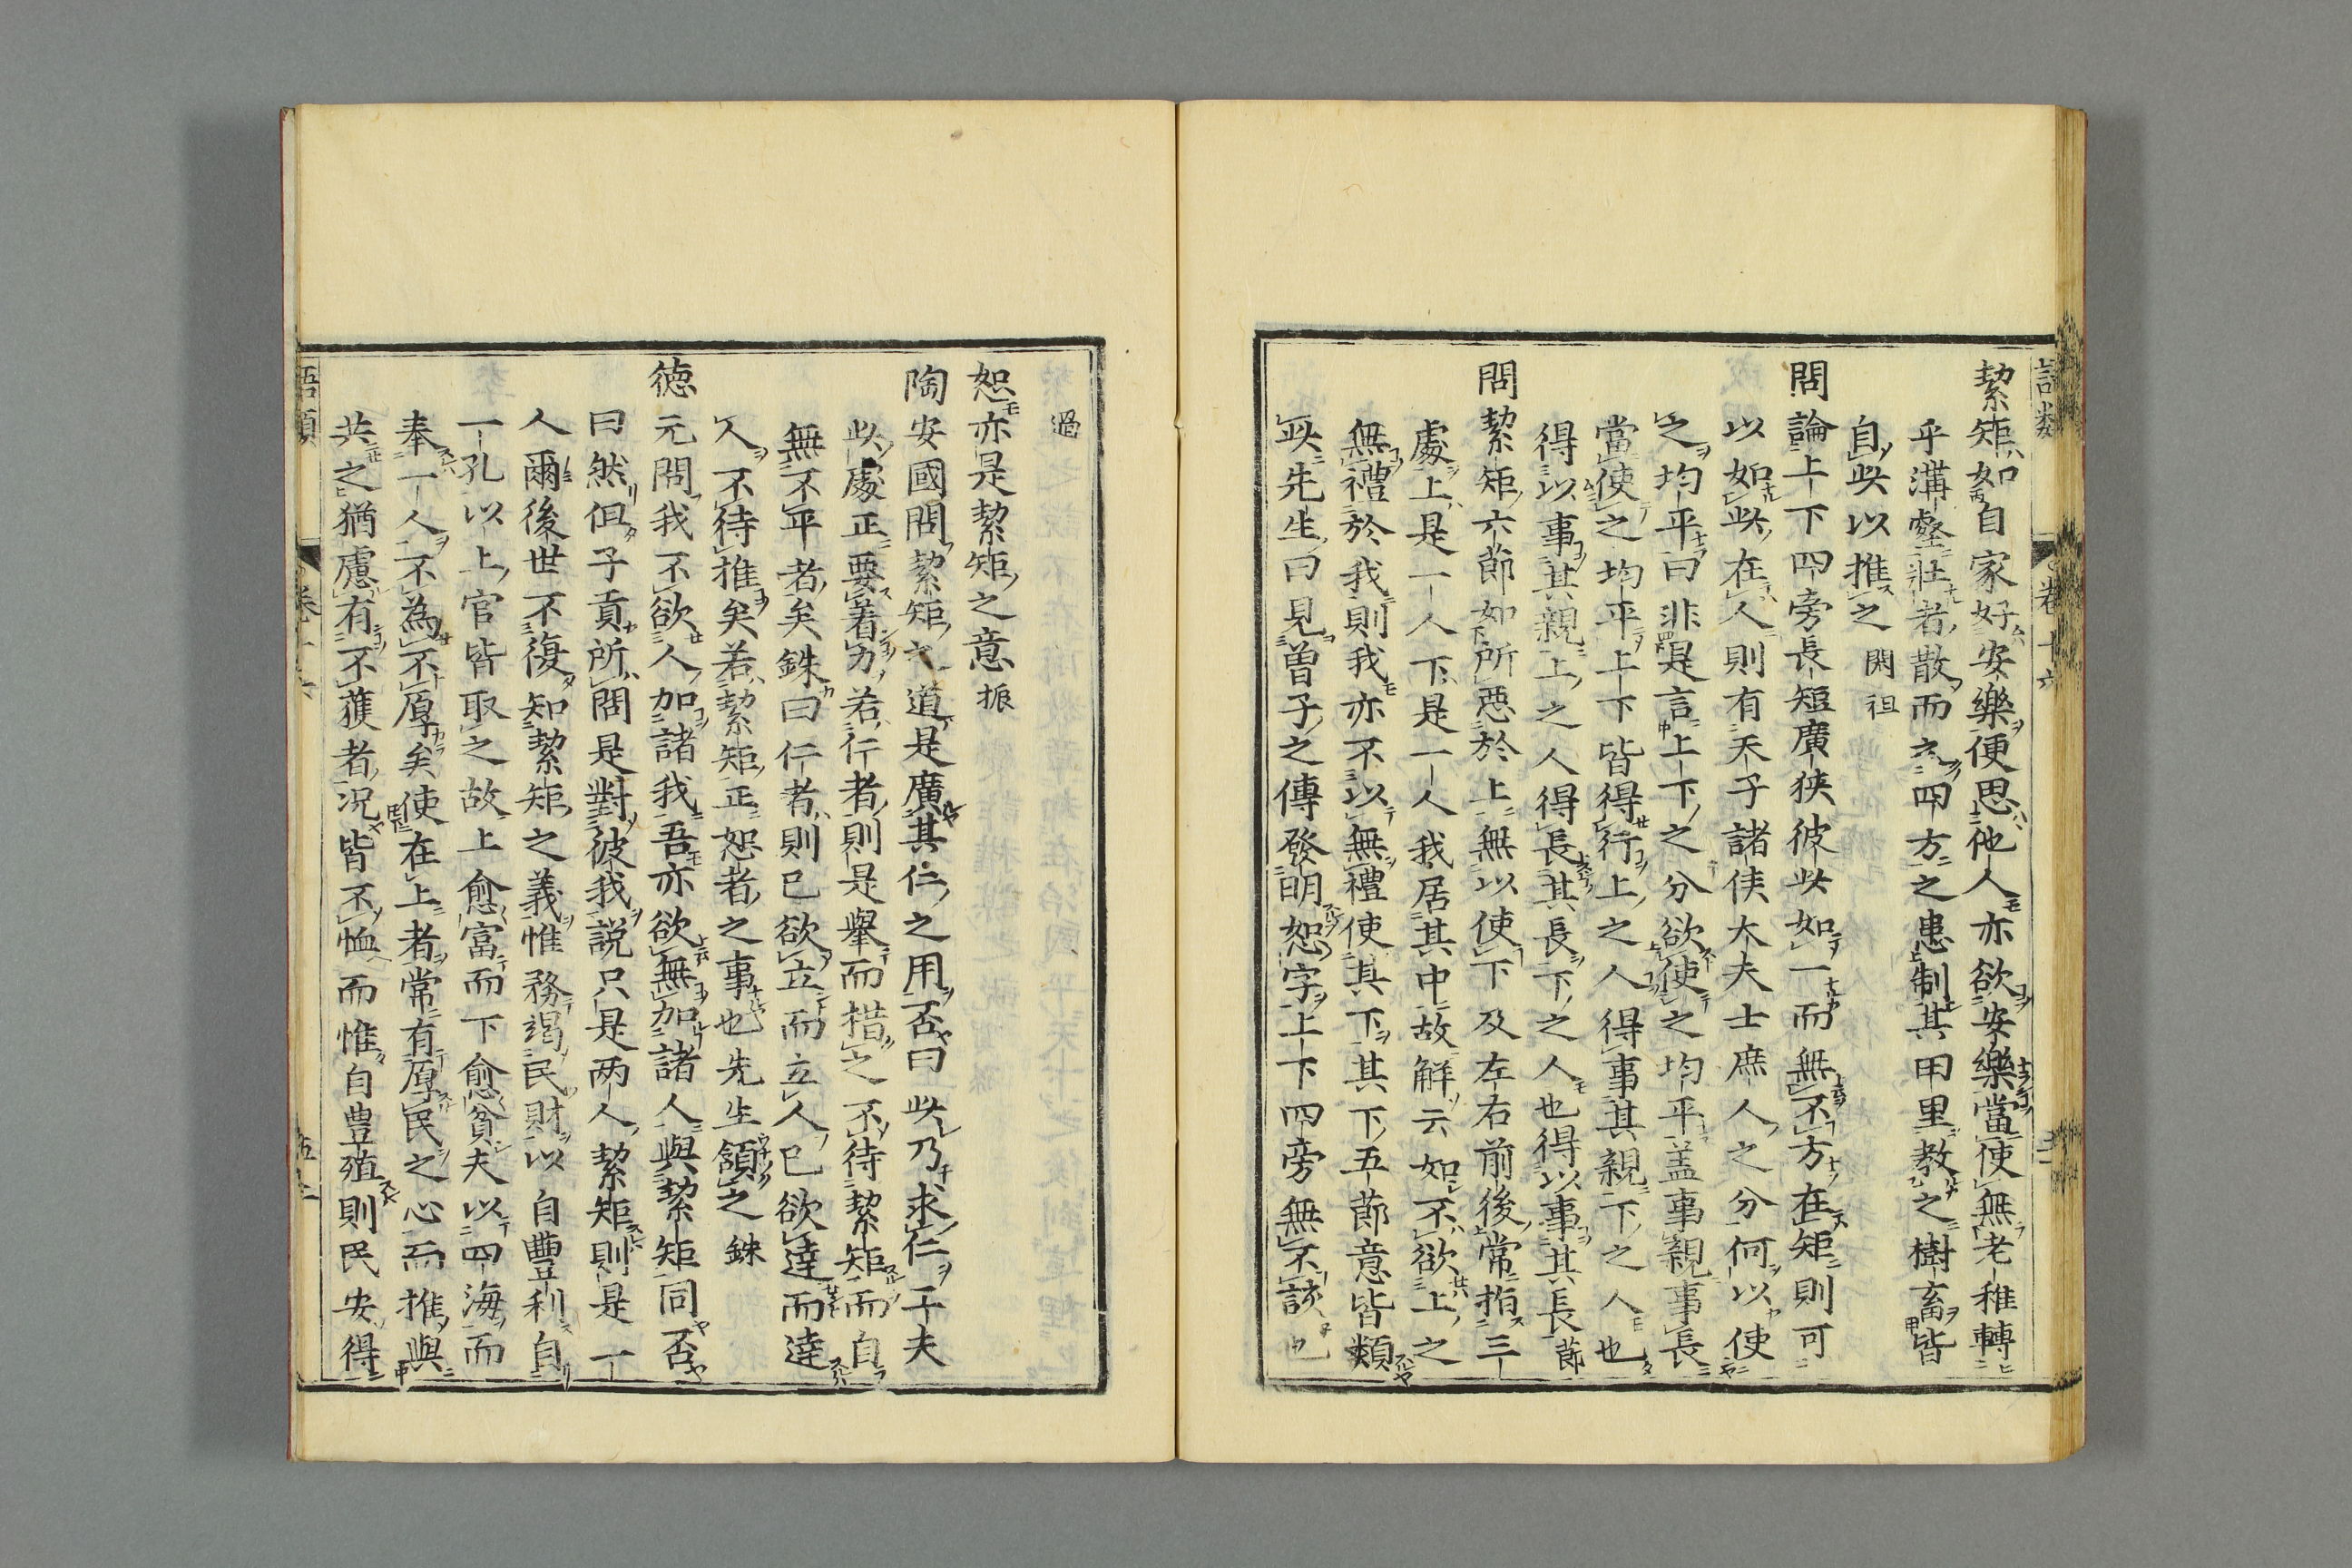 絜矩如自家好安樂便思他人亦欲安樂當使無老稚轉
乎溝壑壯者散而之四方之患制其田里教之樹畜皆
自此以推之 閎祖
問論上下四旁長短廣狹彼此如一而無不方在矩則可
以如此在人則有天子諸侯大夫士庶人之分何以使
之均平曰非是言上下之分欲使之均平盖事親事長
當使之均平上下皆得行上之人得事其親下之人也
得以事其親上之人得長其長下之人也得以事其長 節
問絜矩六節如所惡於上無以使下及左右前後常指三
處上是一人下是一人我居其中故解云如不欲上之
無禮於我則我亦不以無禮使其下其下五節意皆類
此先生曰見曽子之傳發明恕字上下四旁無不該也
過
恕亦是絜矩之意 振
陶安國問絜矩之道是廣其仁之用否曰此乃求仁工夫
此處正要着力若仁者則是舉而措之不待絜矩而自
無不平者矣銖曰仁者則已欲立而立人已欲達而達
人不待推矣若絜矩正恕者之事也先生頷之 銖
徳元問我不欲人加諸我吾亦欲無加諸人與絜矩同否
曰然但子貢所問是對彼我說只是兩人絜矩則是一
人爾後世不復知絜矩之義惟務竭民財以自豐利自
一孔以上官皆取之故上愈富而下愈貧夫以四海而
奉一人不為不厚矣使在上者常有厚民之心而推與
共之猶慮有不獲者况皆不恤而惟自豊殖則民安得